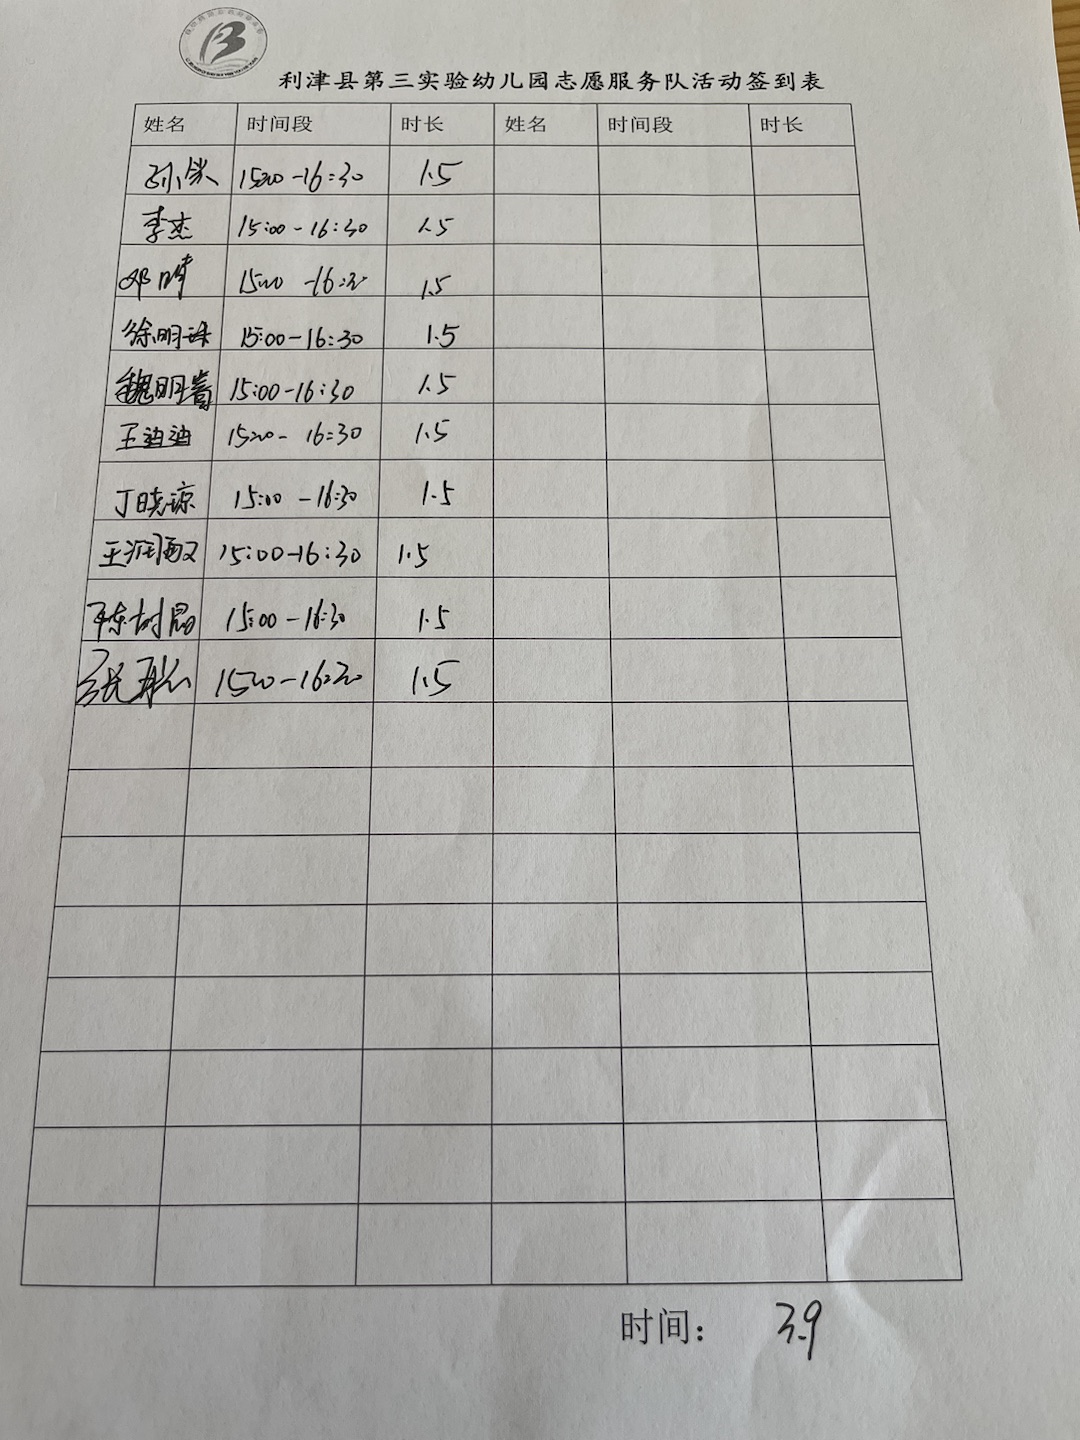 利津县第三实验幼儿园志愿服务队活动签到表
姓名 时间段 时长 姓名 时间段 时长
15:00-16:30 1.5
李杰 15:00-16:30 1.5
邓 15:00-16:30 1.5
徐明珠 15:00-16:30 1.5
魏明 15:00-16:30 1.5
王迪迪 15:00-16:30 1.5
丁晓琼 15:00-16:30 1.5
王润 15:00-16:30 1.5
陈树 15:00-16:30 1.5
张 15:00-16:30 1.5
时间： 3.9